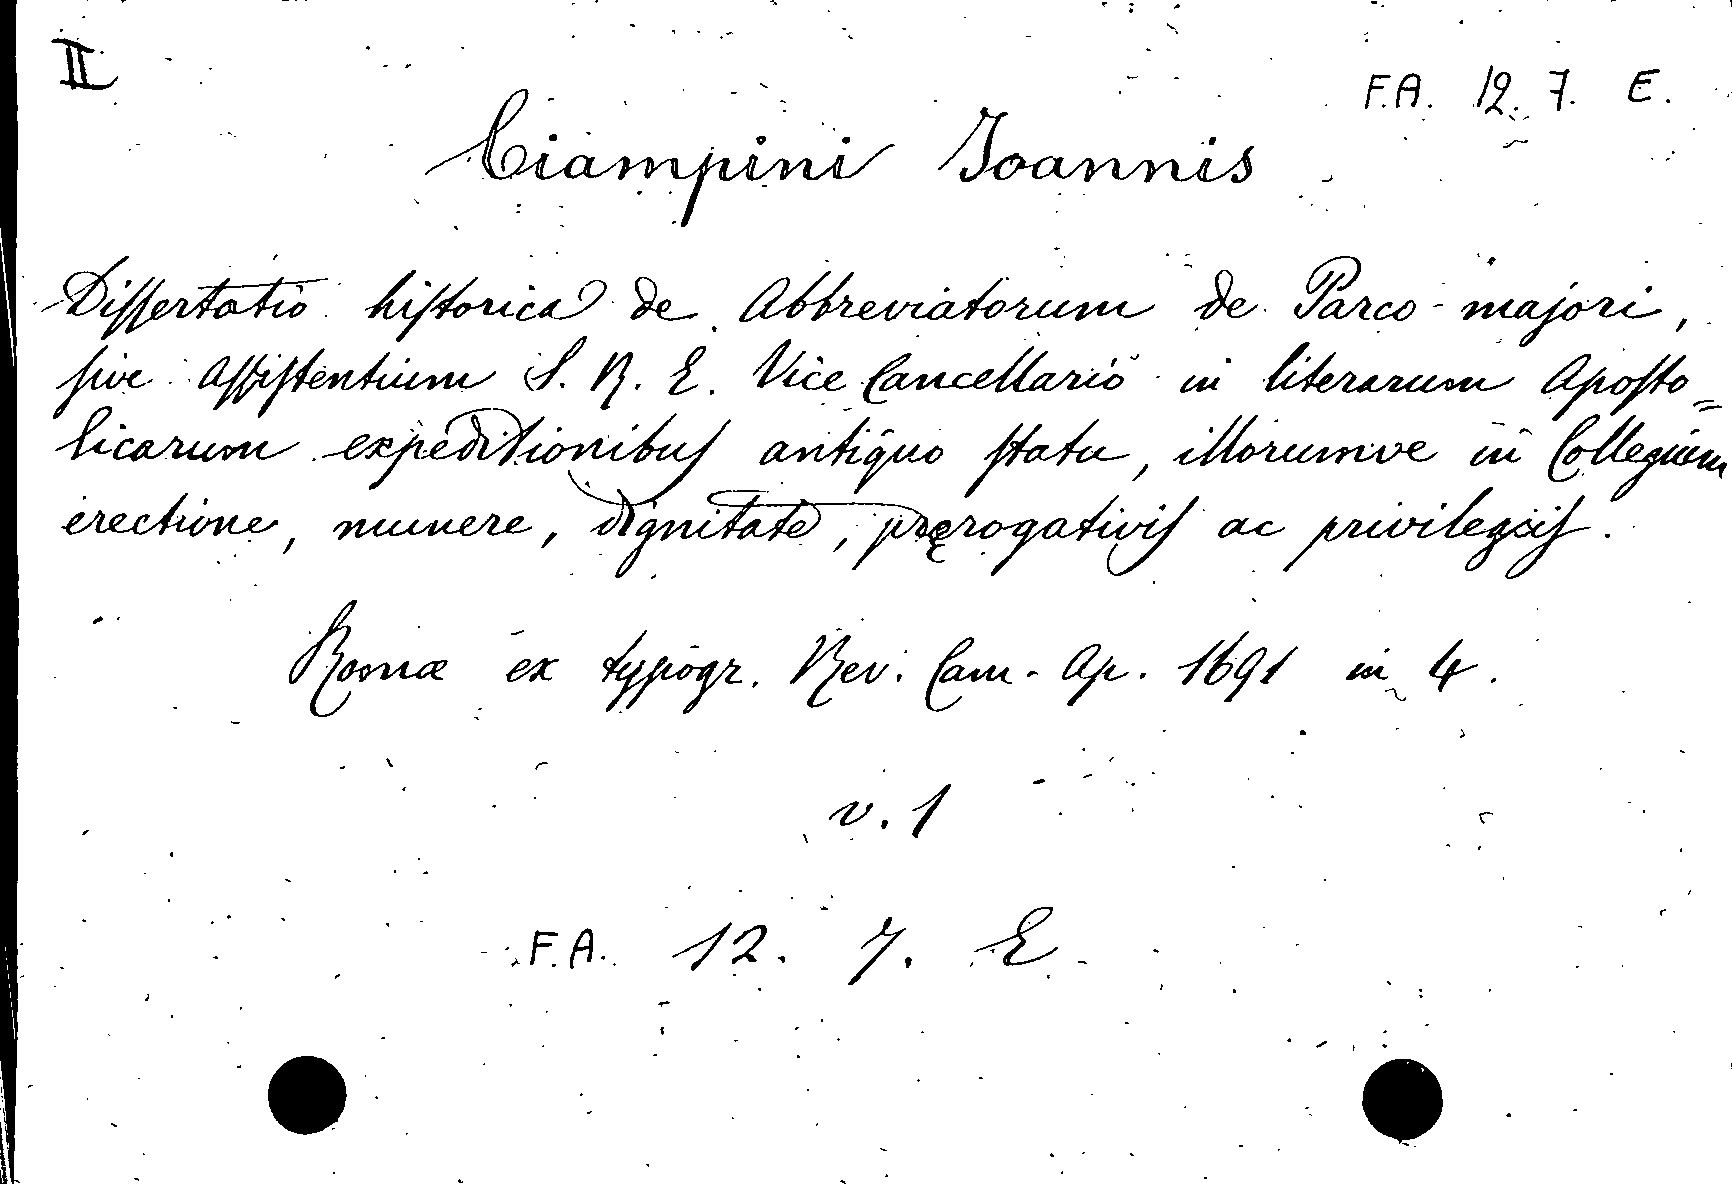 II
F.A. 12. 7. E.
Ciampini Joannis
Dissertatio historica de Abbreviatorum de Parco-majori,
sive Assistentium S. R. E. Vice Cancellario in literarum Aposto=
licarum expeditionibus antiquo statu, illorumve in Collegium
erectione, munere, dignitate, pręrogativis ac privilegiis.
Romæ ex typogr. Rev. Cam. Ap. 1691 in 4.
v. 1
F.A. 12. 7. E